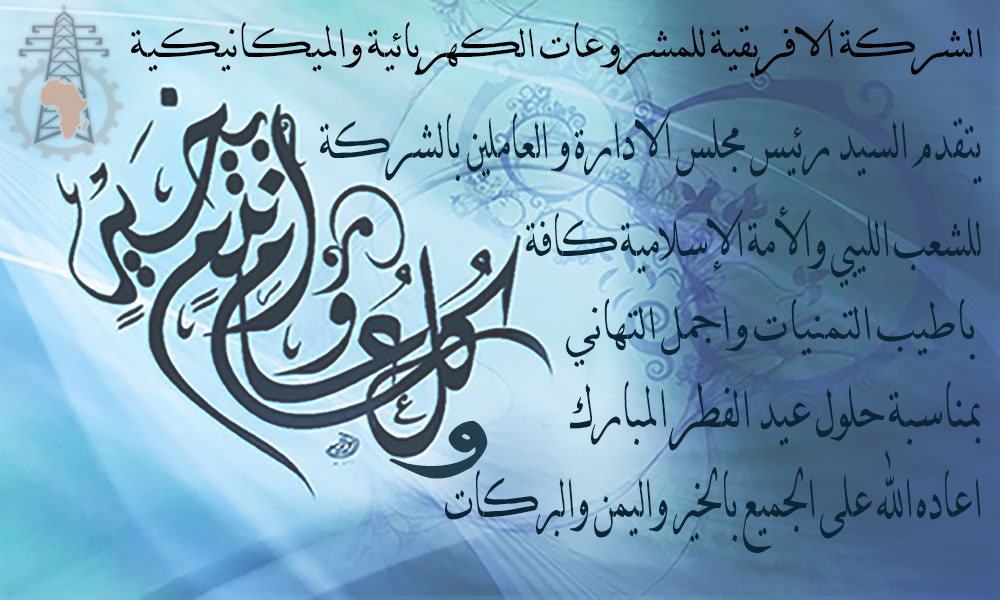 الشركة الافريقية للمشروعات الكهربائية والميكانيكية
يتقدم السيد رئيس مجلس الادارة و العاملين بالشركة
للشعب الليبي والأمة الإسلامية كافة
باطيب التمنيات واجمل التهاني
بمناسبة حلول عيد الفطر المبارك
اعاده الله على الجميع بالخير واليمن والبركات
و كُل عام وأنتم بخير